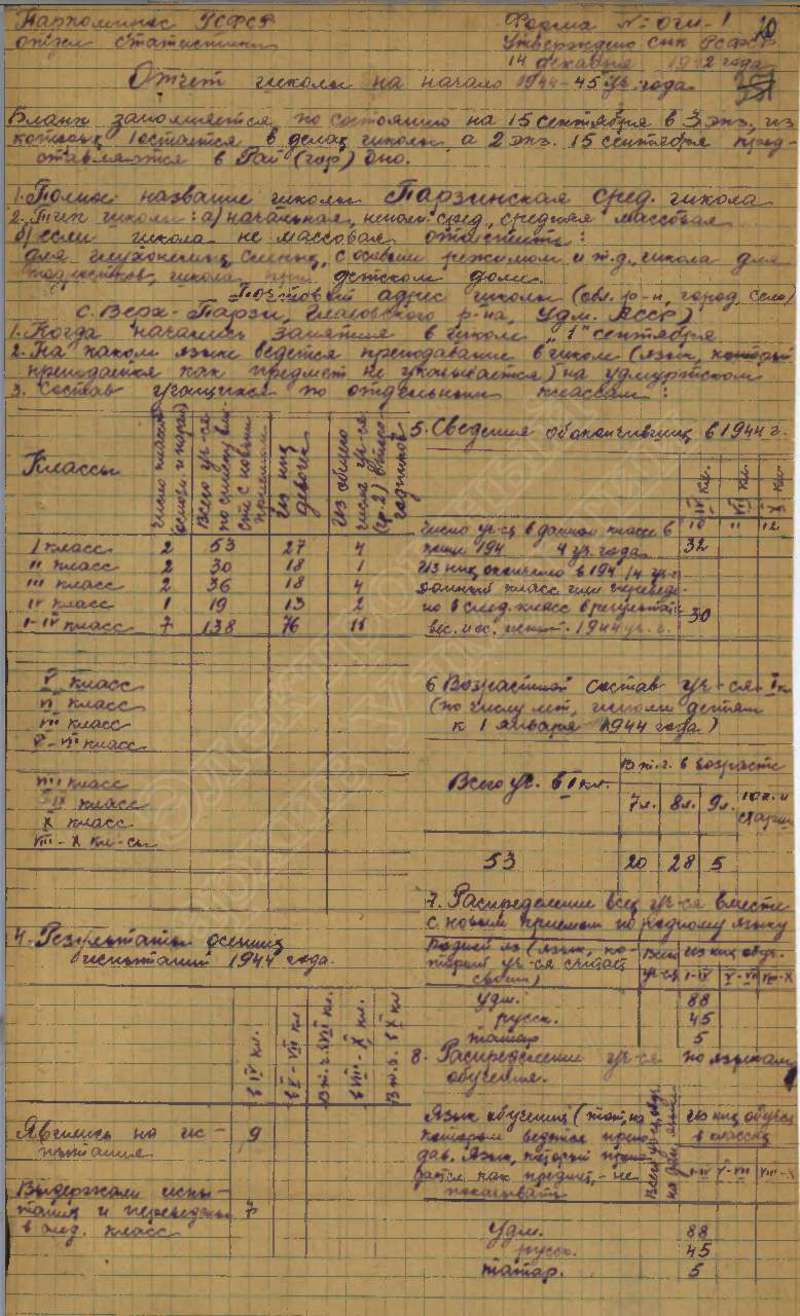 Наркомпрос РСФСР
отдел статистики
Форма № ОШ-1
Утверждено СНК РСФСР
14 декабря 1942 года
Отчет школы на начало 1944-45 уч. года
Бланк заполняется по состоянию на 15 сентября в 3 экз., из
которых 1 остается в делах школы, а 2 экз. 15 сентября пред-
ставляются в Рай (гор) Оно.
1. Полное название школы Парзинская сред. школа
2. Тип школы: а) начальная, непол. сред, средняя массовая
б) если школа не массовая отметить:
для глухонемых, слепых, с особым режимом и т.д., школа для
подростков, школа при детском доме.
Почтовый адрес школы (обл. р-н, город, село)
с. Верх-Парзи, Глазовского р-на, Удм. АССР)
1. Когда начались занятия в школе „1" сентября
2. На каком языке ведется преподавание в школе (язык, который
преподается как предмет не указывается) на удмуртском
3. Состав учащихся по отдельным классам:
Классы
Число классов
(основн и парал)
Всего уч-ся
по списку вме-
сте с новым
приемом
Из них
девочек
Из общего
числа уч-ся
(гр. 2) второ-
годников
I класс 2 53 27 4
II класс 2 30 18 1
III класс 2 36 18 4
IV класс 1 19 13 2
I-IV класс 7 138 76 11
V класс
VI класс
VII класс
V-VII класс
VIII класс
IX класс
X класс
VIII-X кл-сы
4. Результаты осенних
испытаний 1944 года.
в IV кл.
в V-VII кл
В т.ч. в VII кл.
в VIII-X кл.
В т.ч. в X кл
Явились на ис-
пытания 9
Выдержали испы-
тания и переведены 7
в след. класс
5. Сведения об окончивших в 1944 г.
IV кл. VII кл. X кл.
10 11 12
Число уч-ся в данном классе в
конце 194 4 уч. года 32
Из них окончило в 194/4 уч. г
данный класс или переведе-
но в след. класс в результате 30
вес. и ос. испыт. 1944 уч. г.
6 Возрастной состав уч-ся I кл
(по числу лет, исполн детям
к 1 января 1944 года)
Всего уч. в I кл.
В т.ч. в возрасте
7л. 8л. 9л. 10л. и
старш
53 20 28 5
7. Распределение всех уч-ся вместе
с новым приемом по родному языку
Родной яз (язык, ко-
торый уч-ся считает
своим)
Всего
уч-ся
Из них обуч.
I-IV V-VII VIII-X
удм. 88
русск. 45
татар 5
8. Распределение уч-ся по языкам
обучения.
Язык обучения (тот, на
котором ведется препо-
дав. Язык, который препо-
дается как предмет, - не
показывать
Всего уч-ся, обуч.
на дан. языке
Из них обучся
в классах
I-IV V-VII VIII-X
удм. 88
русск. 45
татар. 5